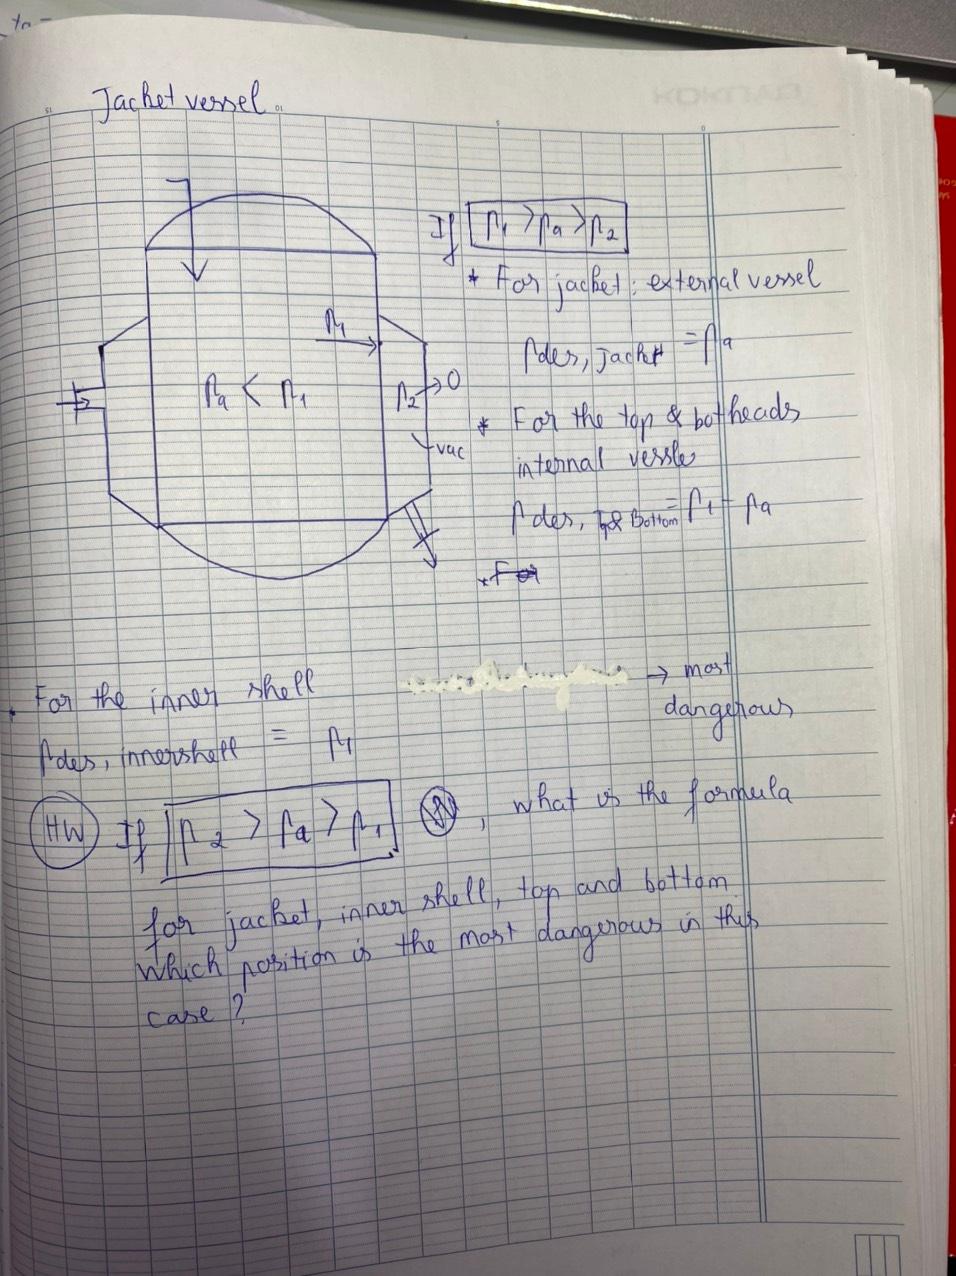 Jacket vessel
P1
Pa < P1
P2 → 0
vac
If P1 > Pa > P2
* For jacket: external vessel
Pdes, jacket = Pa
* For the top & bot heads
internal vessle
Pdes, T&Bottom = P1 - Pa
. For the inner shell
→ most
dangerous
Pdes, innershell = P1
HW If P2 > Pa > P1 , what is the formula
for jacket, inner shell, top and bottom
which position is the most dangerous in this
case ?